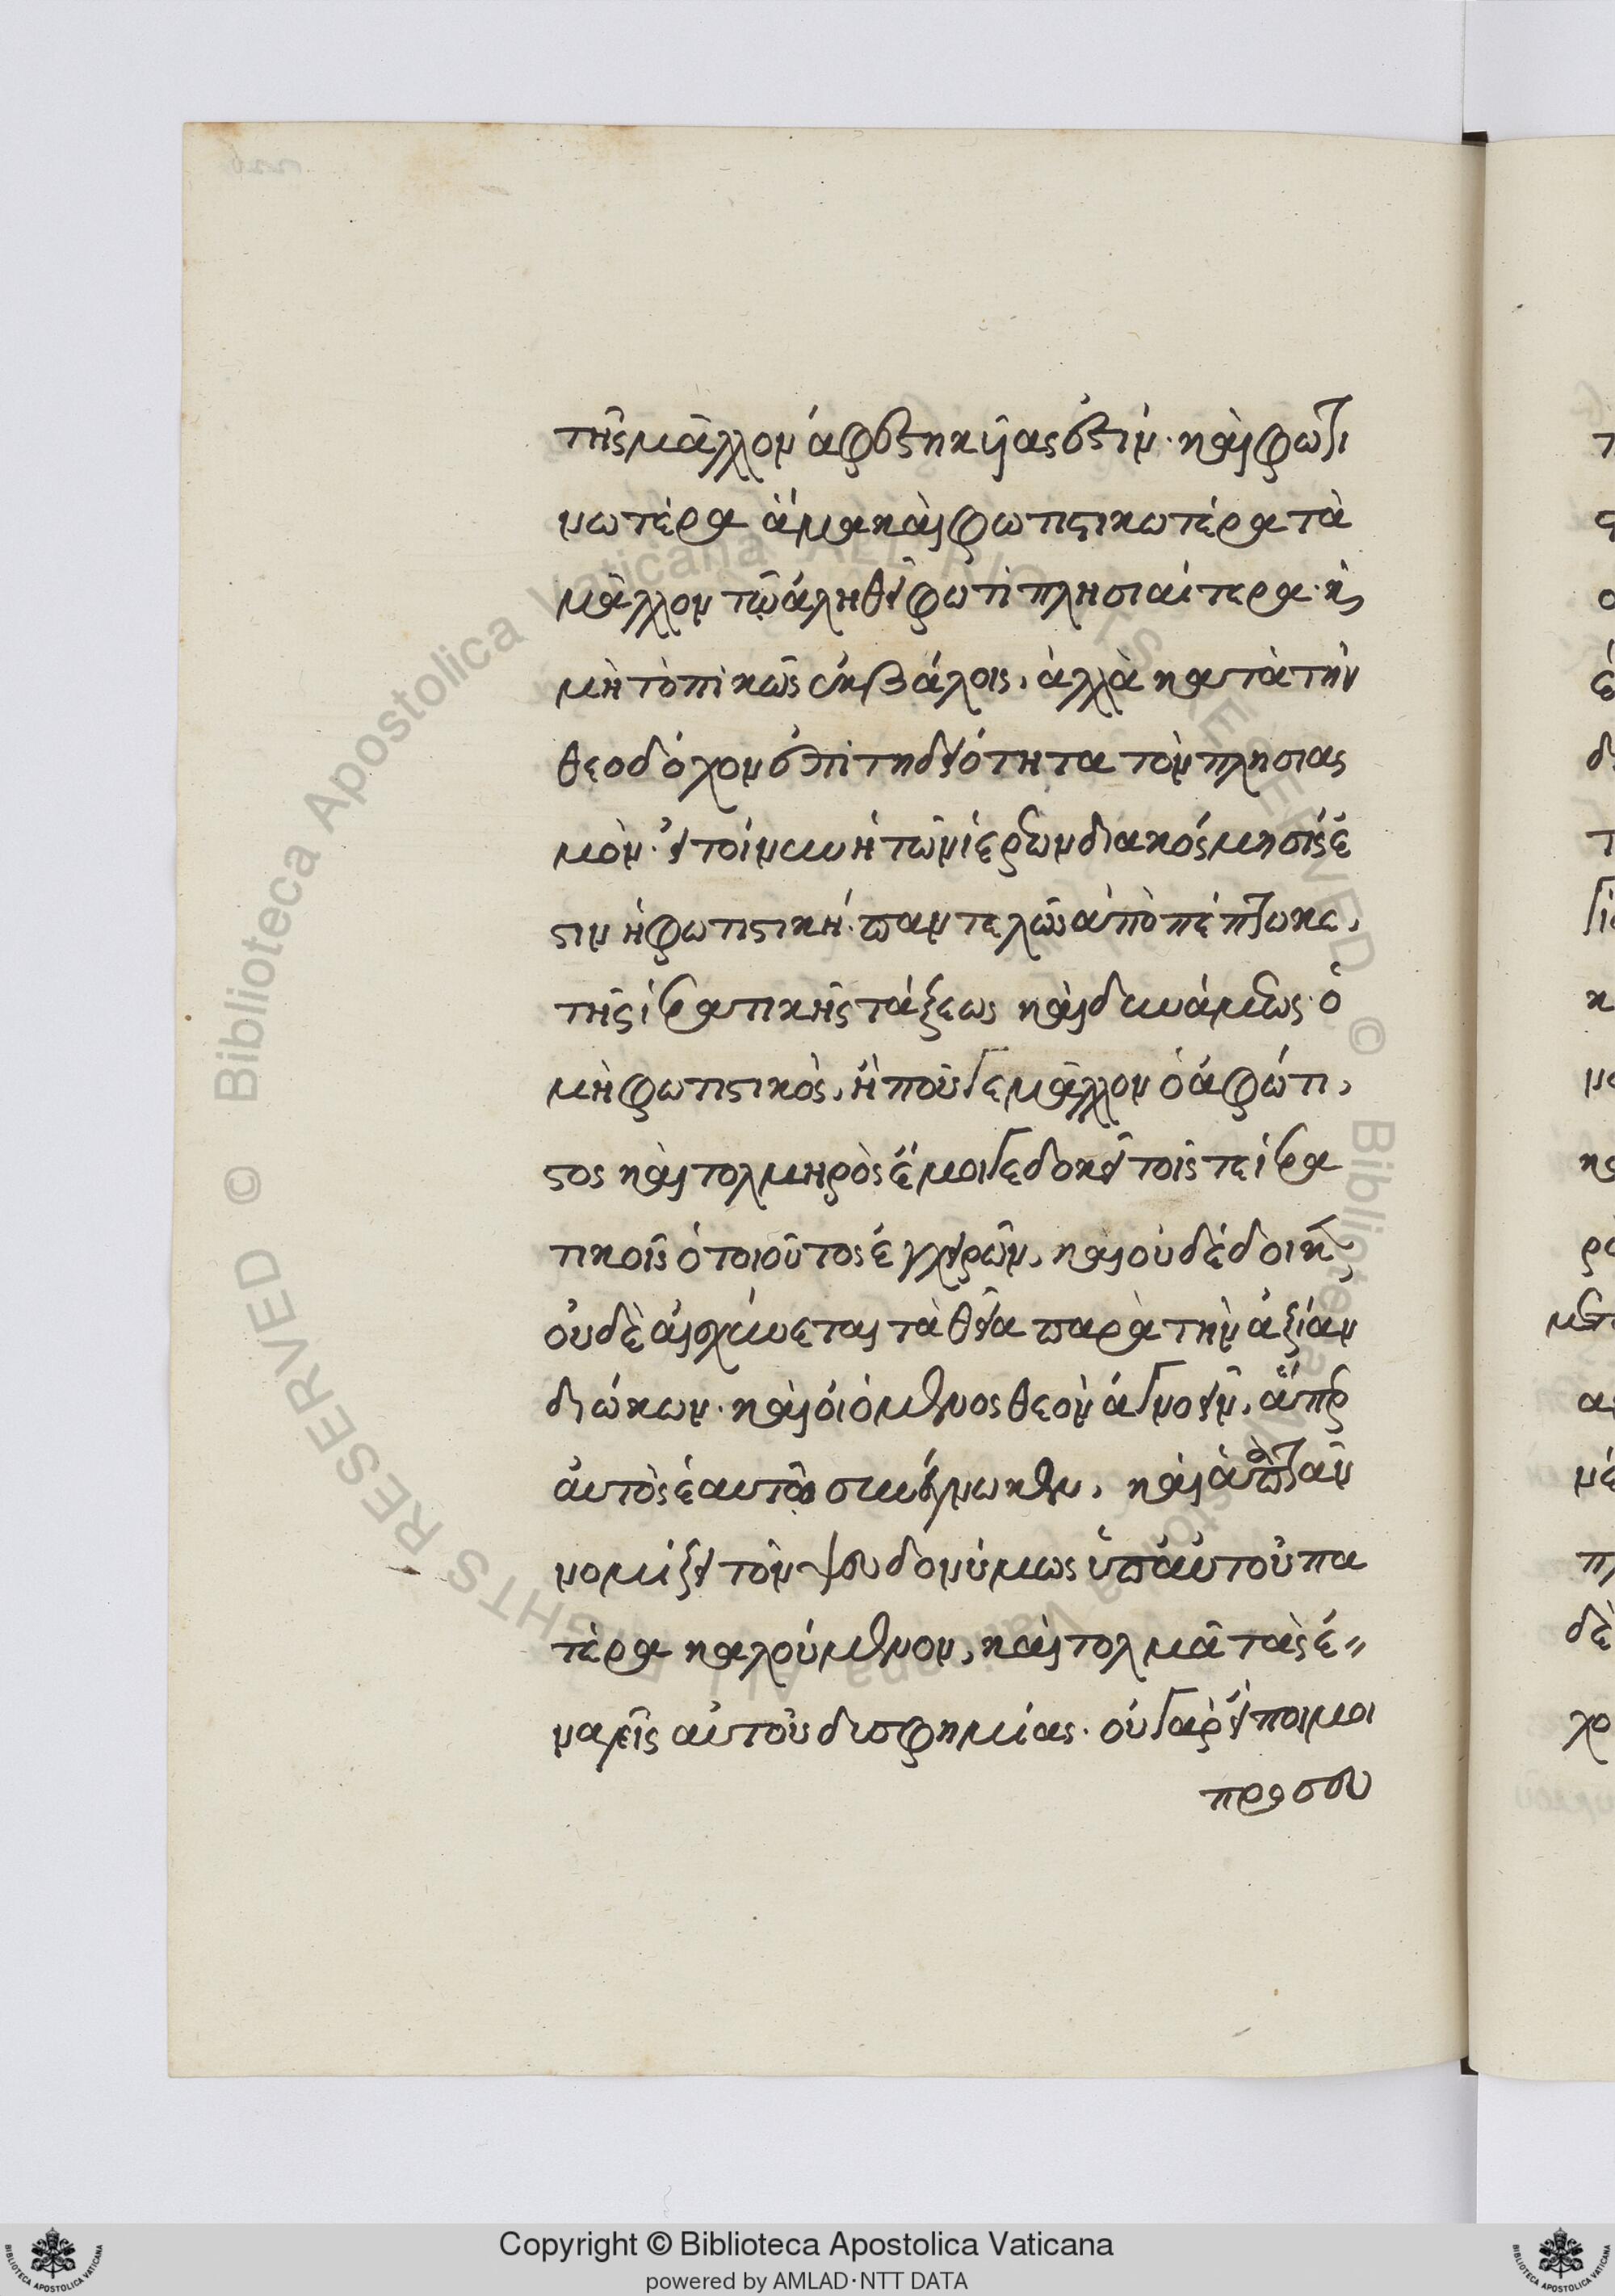 τῆς μᾶλλον ἀφεστηκυίας ἐστίν· καὶ φωτει
νωτέρα ἅμα καὶ φωτιστικωτέρα τὰ
μᾶλλον τῷ ἀληθεῖ φωτὶ πλησιαίτερα· καὶ
μὴ τοπικῶς ἐκβάλοις, ἀλλὰ κατὰ τὴν
θεοδόχον ἐπιτηδειότητα τὸν πλησιας
μόν· εἰ τοίνυν ἡ τῶν ἱερέων διακόσμησίς ἐ
στιν ἡ φωτιστική· παντελῶς ἀποπέπτωκε,
τῆς ἱερατικῆς τάξεως καὶ δυνάμεως· ὁ
μὴ φωτιστικὸς, ἤ που γε μᾶλλον ὁ ἀφώτι,
στος καὶ τολμηρὸς ἔμοιγε δοκεῖ τοῖς τε ἱερα
τικοῖς ὁ τοιοῦτος ἐγχειρῶν, καὶ οὐ δέδοικεν
οὐδὲ αἰσχύνεται τὰ θεῖα παρὰ τὴν ἀξίαν
διώκων· καὶ οἰόμενος θεὸν ἀγνοεῖν, ἅπερ
αὐτὸς ἑαυτῷ συνέγνωκεν, καὶ ἀπατᾶν
νομίζει τὸν ψευδονύμως ὑπ' αὐτοῦ πα
τέρα καλούμενον, καὶ τολμᾶ τὰς ἐ〃
ναγεῖς αὐτοῦ δυσφημίας· οὐ γὰρ εἴποιμι
προσευ
Copyright © Biblioteca Apostolica Vaticana
powered by AMLAD·NTT DATA